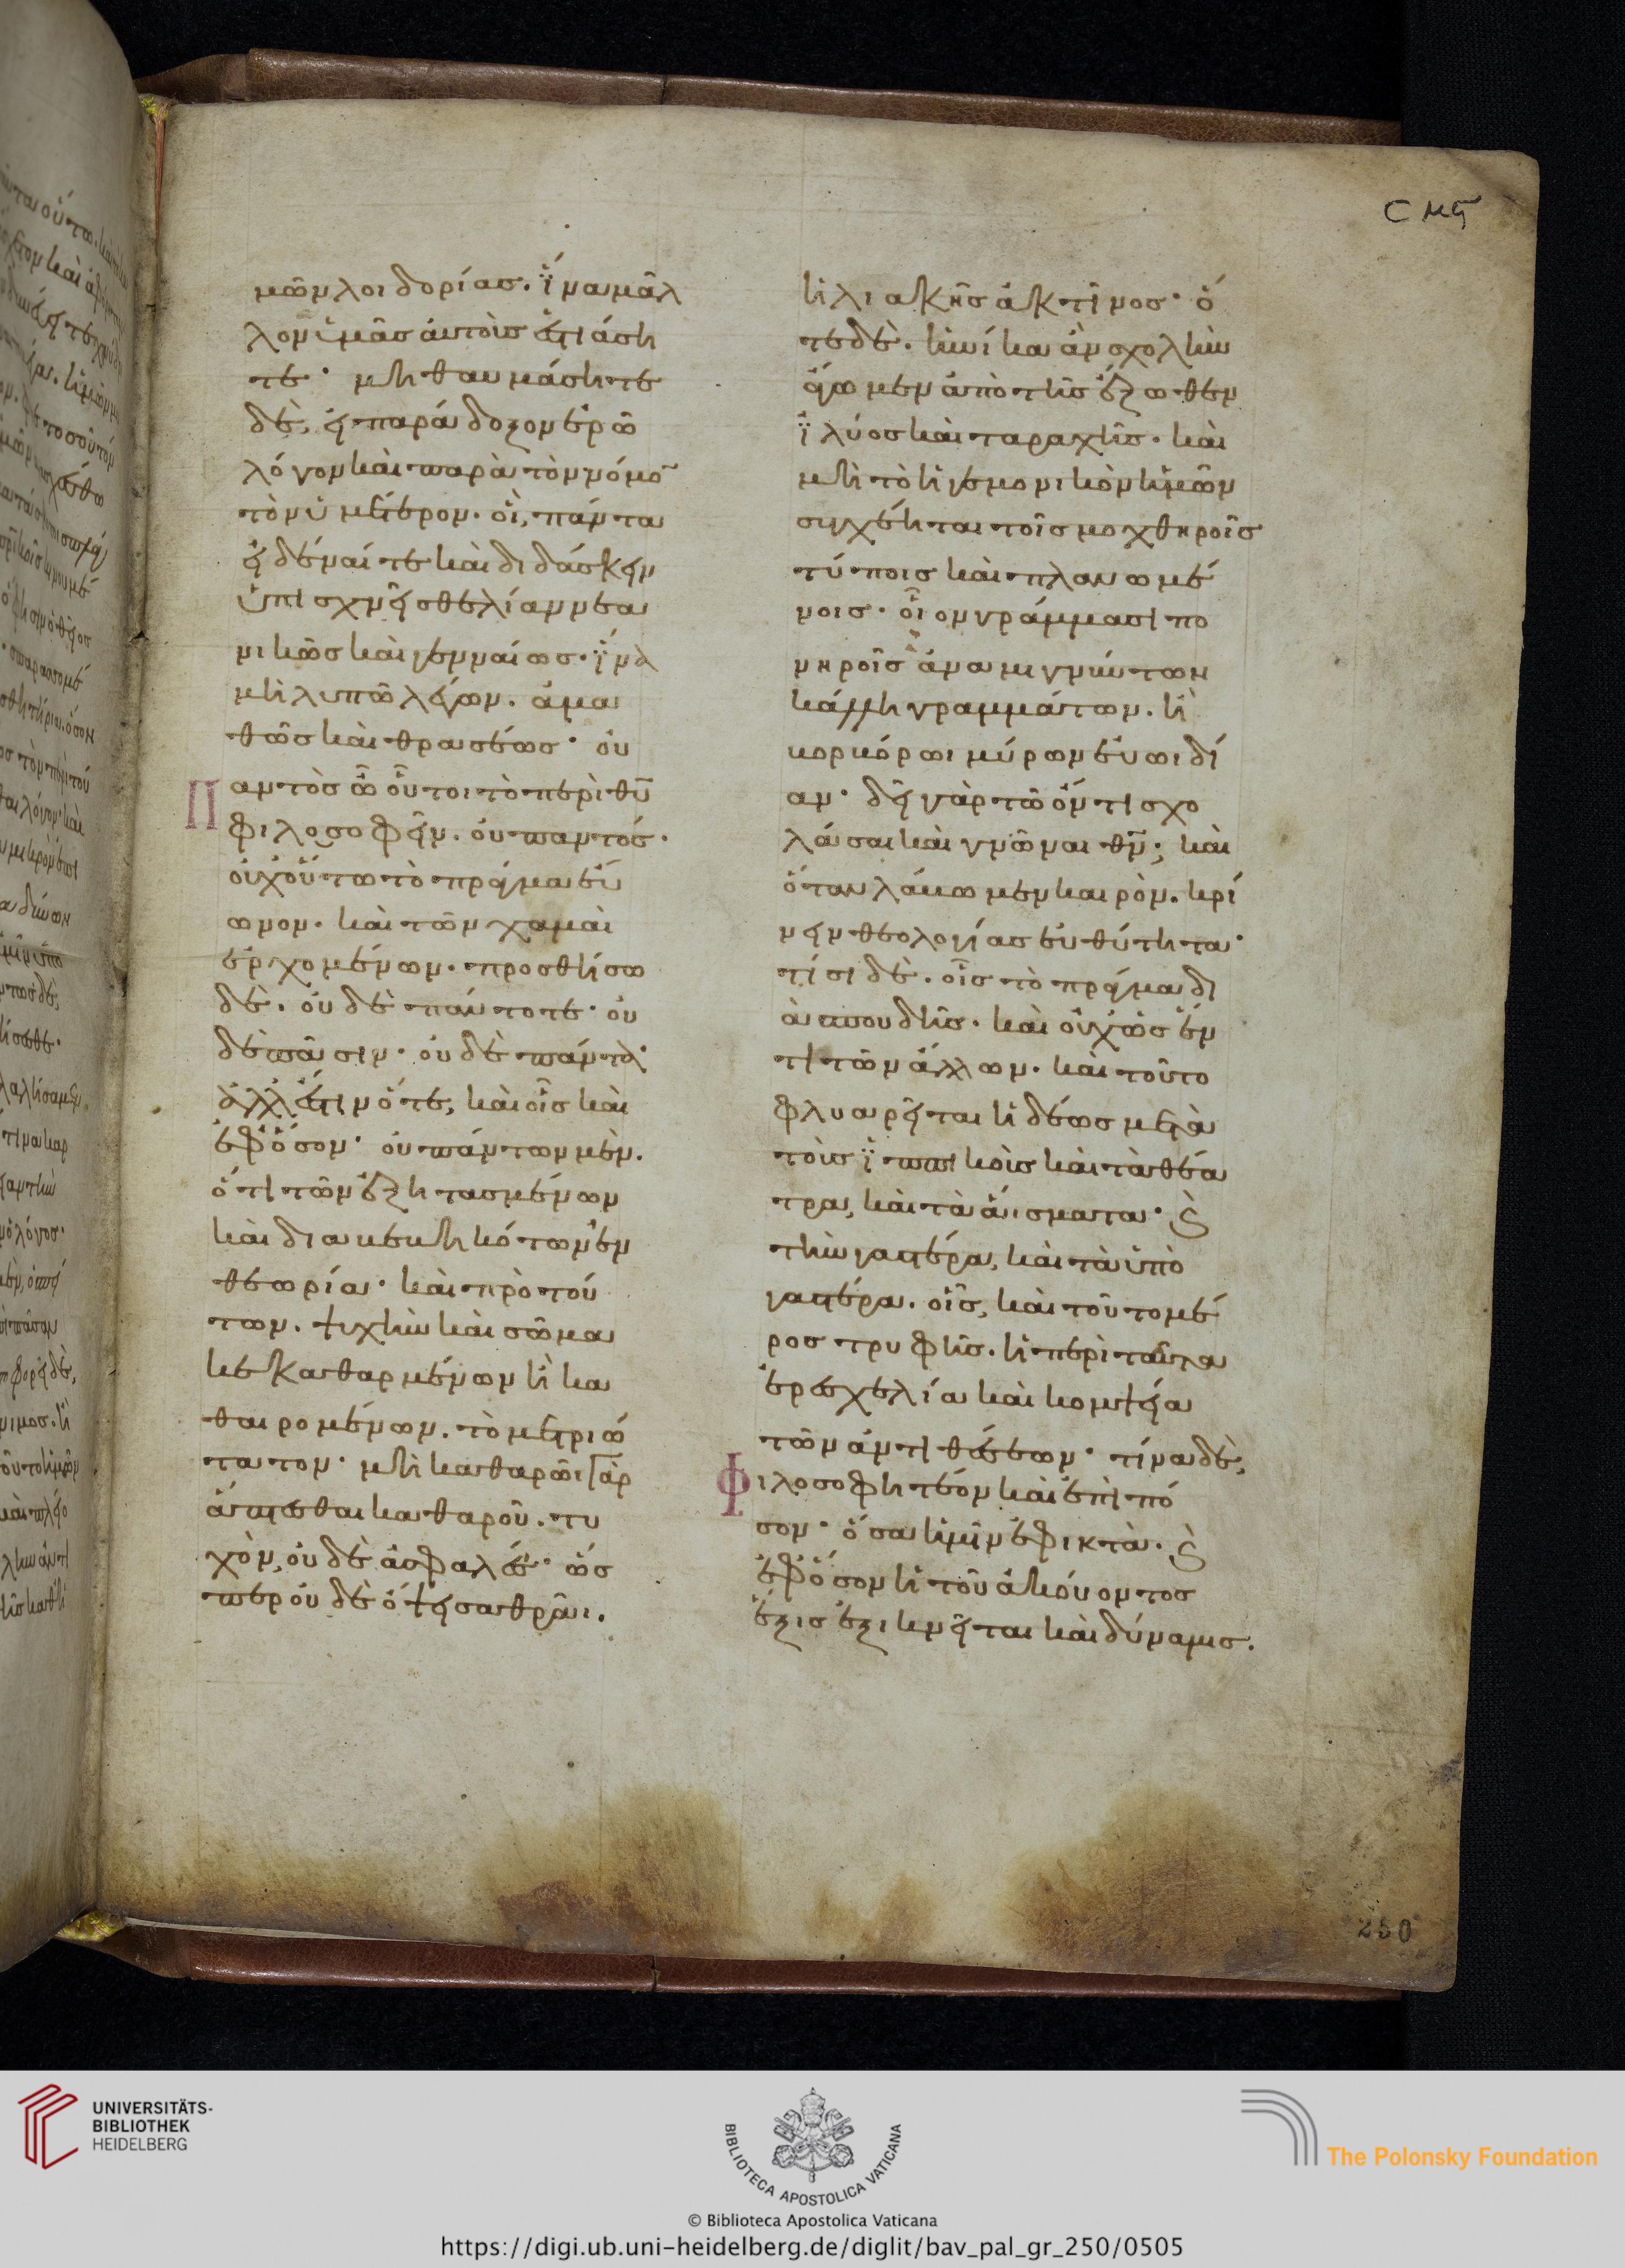 σμϛ
μῶν λοιδορίας. ἵνα μᾶλ
λον ὑμᾶς αὐτοὺς ἑστιάση
τε· μὴ θαυμάσητε
δὲ, εἰ παράδοξον ἐρῶ
λόγον καὶ παρὰ τὸν νόμο̅
τὸν ὑμέτερον. οἳ, πάντα
εἰδέναί τε καὶ διδάσκειν
ὑπισχνεῖσθε λίαν νεα
νικῶς καὶ γενναίως· ἵνα
μὴ λυπῶ λέγων. ἀμα
θῶς καὶ θρασέως· οὐ
παντὸς ὦ οὗτοι τὸ περὶ θ̅υ̅
φιλοσοφεῖν. οὐ παντός·
οὐχ οὕτω τὸ πρᾶγμα εὔ
ωνον. καὶ τῶν χαμαὶ
ἐρχομένων. προσθήσω
δὲ. οὐδὲ πάντοτε· οὐ
δὲ πᾶσιν. οὐδὲ πάντα·
ἀλλ' ἔστιν ὅτε, καὶ οἷς καὶ
ἐφ' ὅσον· οὐ πάντων μὲν.
ὅτι τῶν ἐξητασμένων
καὶ διαβεβηκότων ἐν
θεωρία· καὶ πρὸ τού
των. ψυχὴν καὶ σῶμα
κεκαθαρμένων ἢ κα
θαιρομένων. τὸ μετριώ
τατον· μὴ καθαρῶι γὰρ
ἅπτεσθαι καθαροῦ. τυ
χὸν, οὐδὲ ἀσφαλές· ὥσ
περ οὐδὲ ὄψει σαθρᾶι.
ἡλιακῆς ἀκτῖνος· ὅ
τε δὲ. ἡνίκα ἂν σχολὴν
ἄγωμεν ἀπὸ τῆς ἔξωθεν
ἰλύος καὶ ταραχῆς. καὶ
μὴ τὸ ἡγεμονικὸν ἡμῶν
συγχέηται τοῖς μοχθηροῖς
τύποις καὶ πλανωμέ
νοις· οἷον γράμμασι πο
νηροῖς ἀναμιγνύντων
κάλλη γραμμάτων. ἢ
βορβόρωι μύρων εὐωιδί
αν· δεῖ γὰρ τῶ ὄντι σχο
λάσαι καὶ γνῶναι θ̅ν̅; καὶ
ὅταν λάβωμεν καιρὸν. κρί
νειν θεολογίας εὐθύτητα·
τίσι δὲ. οἷς τὸ πρᾶγμα δι
ὰ σπουδῆς. καὶ οὐχ ὡς ἕν
τι τῶν ἄλλων. καὶ τοῦτο
φλυαρεῖται ἡδέως μετὰ
τοὺς ἱππικοὺς καὶ τὰ θέα
τρα, καὶ τὰ ἄισματα· ϗ
τὴν γαστέρα, καὶ τὰ ὑπὸ
γαστέρα. οἷς, καὶ τοῦτο μέ
ρος τρυφῆς. ἡ περὶ ταῦτα
ἐρεσχελία καὶ κομψεία
τῶν ἀντιθέσεων· τίνα δὲ,
φιλοσοφητέον καὶ ἐπὶ πό
σον· ὅσα ἡμῖν ἐφικτὰ. ϗ
ἐφ' ὅσον ἡ τοῦ ἀκούοντος
ἕξις ἐξικνεῖται καὶ δύναμις.
250
UNIVERSITÄTS-
BIBLIOTHEK
HEIDELBERG
BIBLIOTECA APOSTOLICA VATICANA
The Polonsky Foundation
© Biblioteca Apostolica Vaticana
https://digi.ub.uni-heidelberg.de/diglit/bav_pal_gr_250/0505